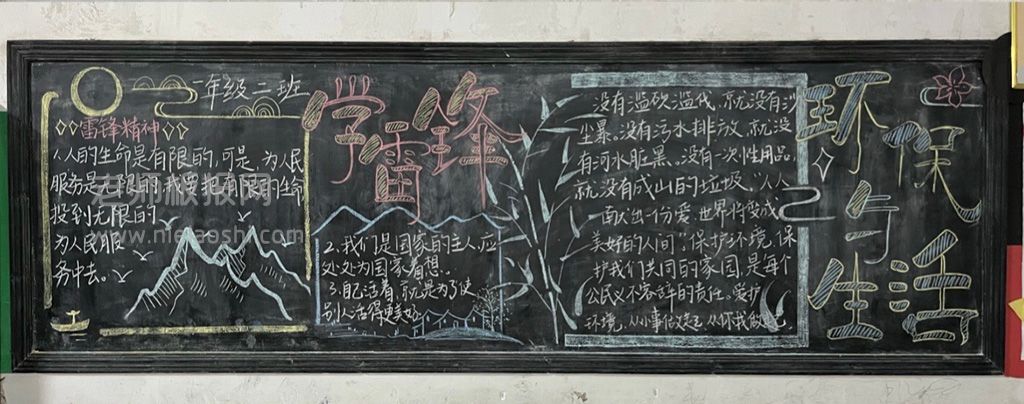 一年级二班
◇◇雷锋精神◇◇
1.人的生命是有限的,可是,为人民
服务是无限的,我要把有限的生命
投到无限的
为人民服
务中去。
学雷锋
2.我们是国家的主人,应
处处为国家着想。
3.自己活着,就是为了使
别人活得更美好
没有滥砍滥伐,就没有沙
尘暴。没有污水排放,就没
有河水脏黑、没有一次性用品,
就没有成山的垃圾,"人人
献出一份爱,世界将变成
美好的人间".保护环境,保
护我们共同的家园,是每个
公民义不容辞的责任。爱护
环境,从小事做起,从你我做起
环保
与
生活
老师板报网
www.nielaoshi.com